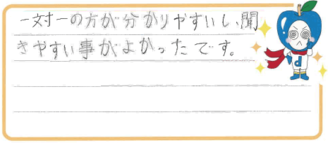 一対一の方が分かりやすいし聞
きやすい事がよかったです。